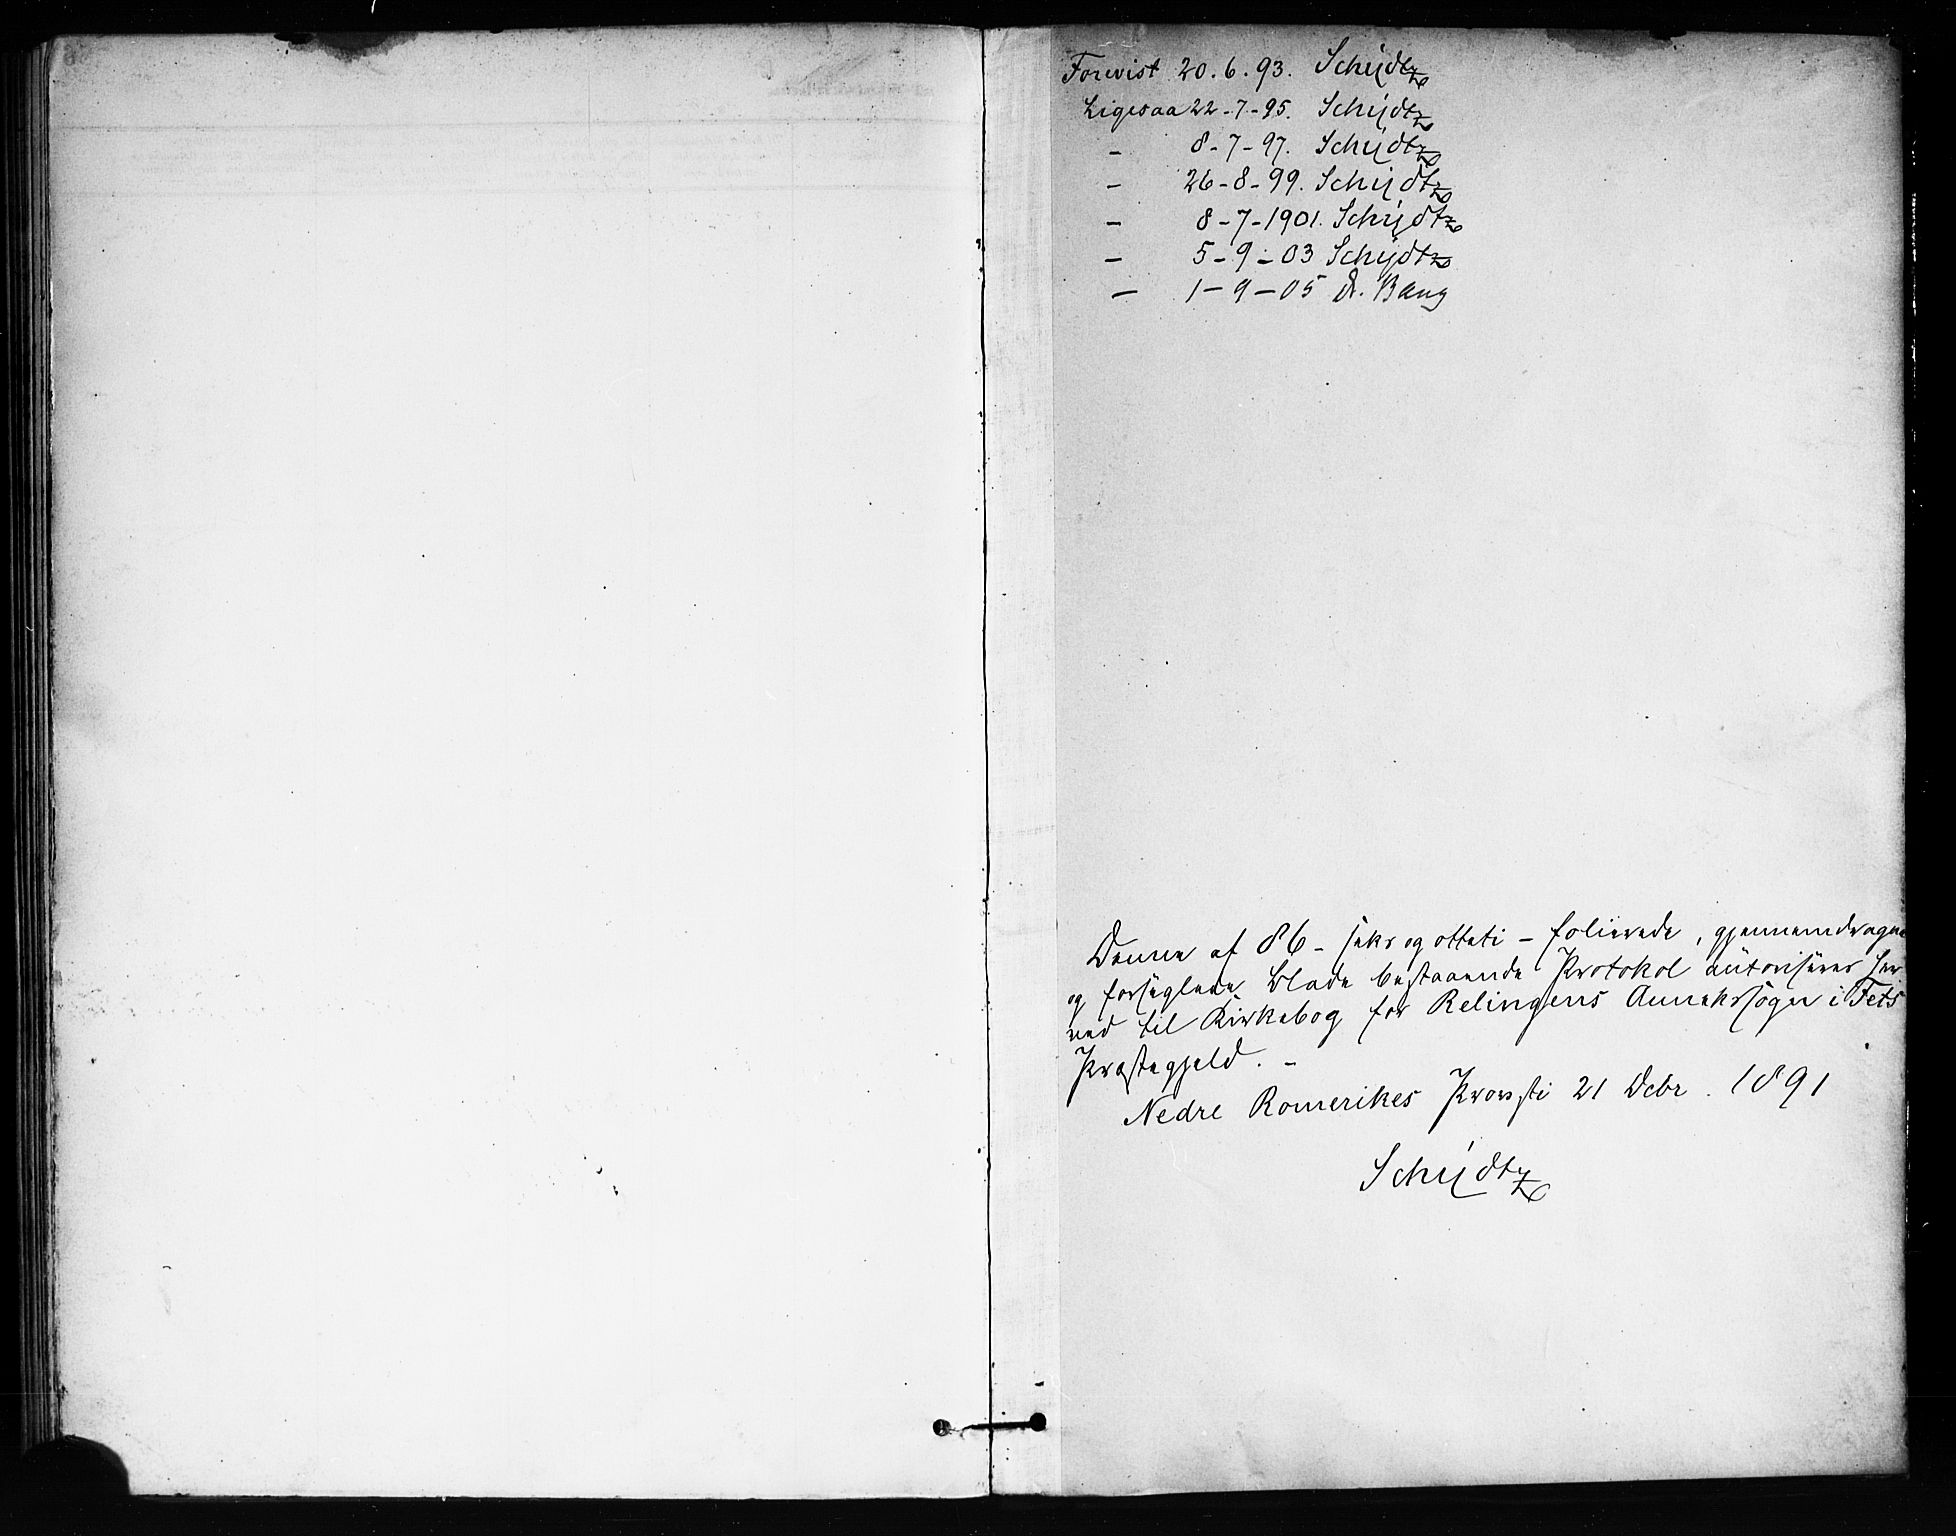 Forevist 20.6.93. Schijdtz
Ligesaa 22-7-95. Schijdtz
- 8-7-97. Schijdtz
- 26-8-99. Schijdtz
- 8-7-1901. Schijdtz
- 5-9-03 Schijdtz
- 1-9-05 Dr. Bang
Denne af 86 - seks og otteti - folierede, gjennemdragne
og forseglede Blade bestaaende Protokol autoriseres her
ved til Kirkebog for Relingens Annekssogn i Fets
Præstegjeld. -
Nedre Romerikes Provsti 21 Debr. 1891
Schijdtz